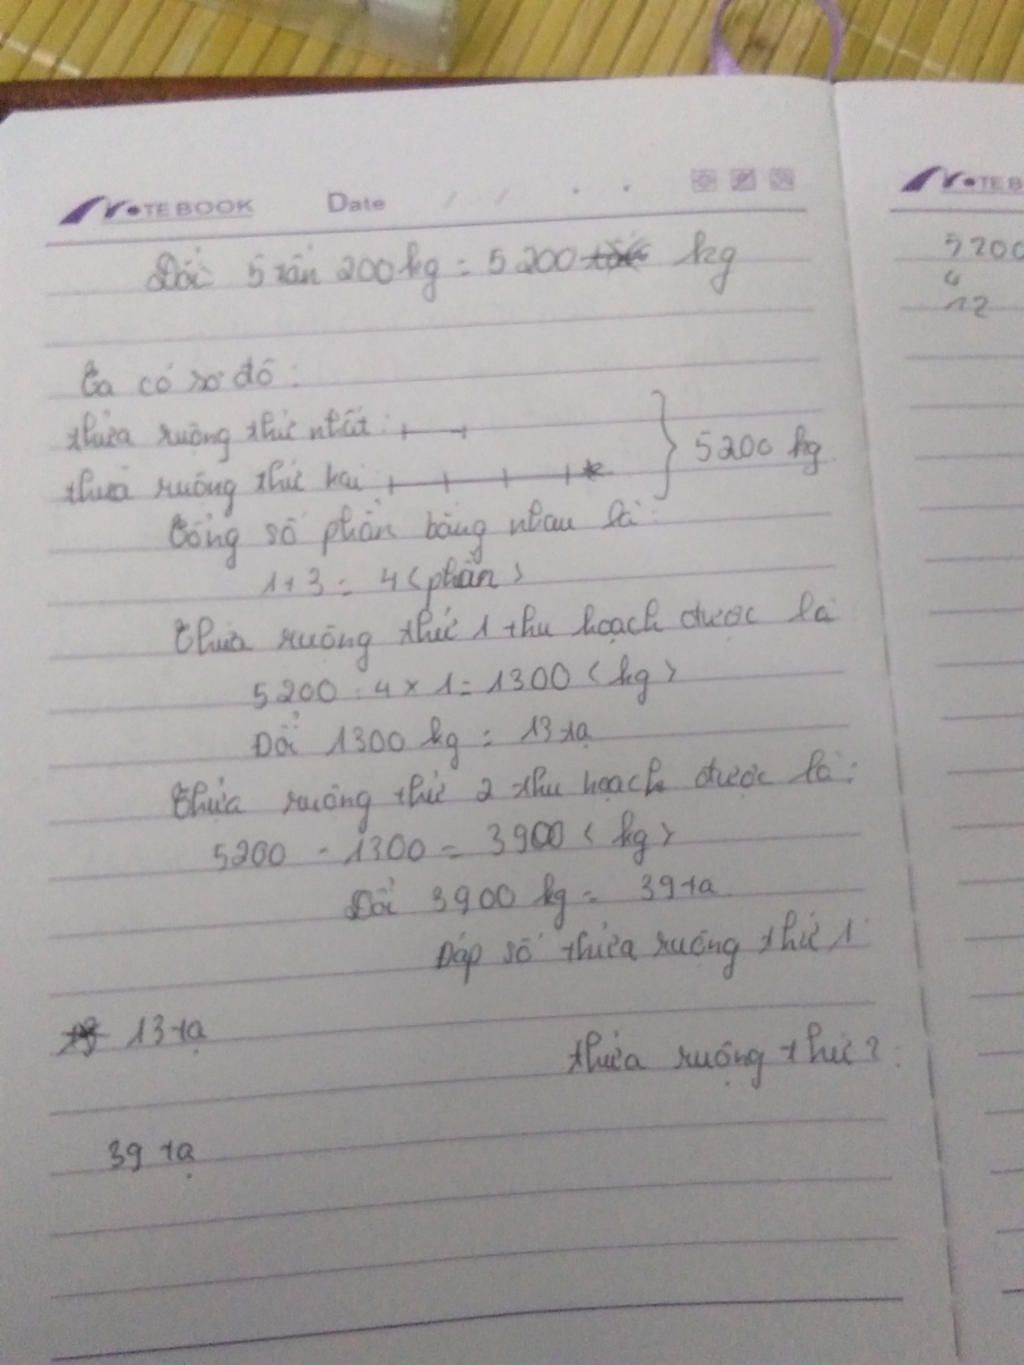 NOTEBOOK Date / /
Đổi 5 tấn 200 kg = 5200 kg
Ta có sơ đồ:
thửa ruộng thứ nhất:
5200 kg
thửa ruộng thứ hai
Tổng số phần bằng nhau là:
1 + 3 = 4 (phần)
Thửa ruộng thứ 1 thu hoạch được là
5200 : 4 x 1 = 1300 (kg)
Đổi 1300 kg = 13 tạ
Thửa ruộng thứ 2 thu hoạch được là:
5200 - 1300 = 3900 (kg)
Đổi 3900 kg = 39 tạ
Đáp số thửa ruộng thứ 1:
13 tạ
thửa ruộng thứ 2:
39 tạ
NOTEB
5200
4
12